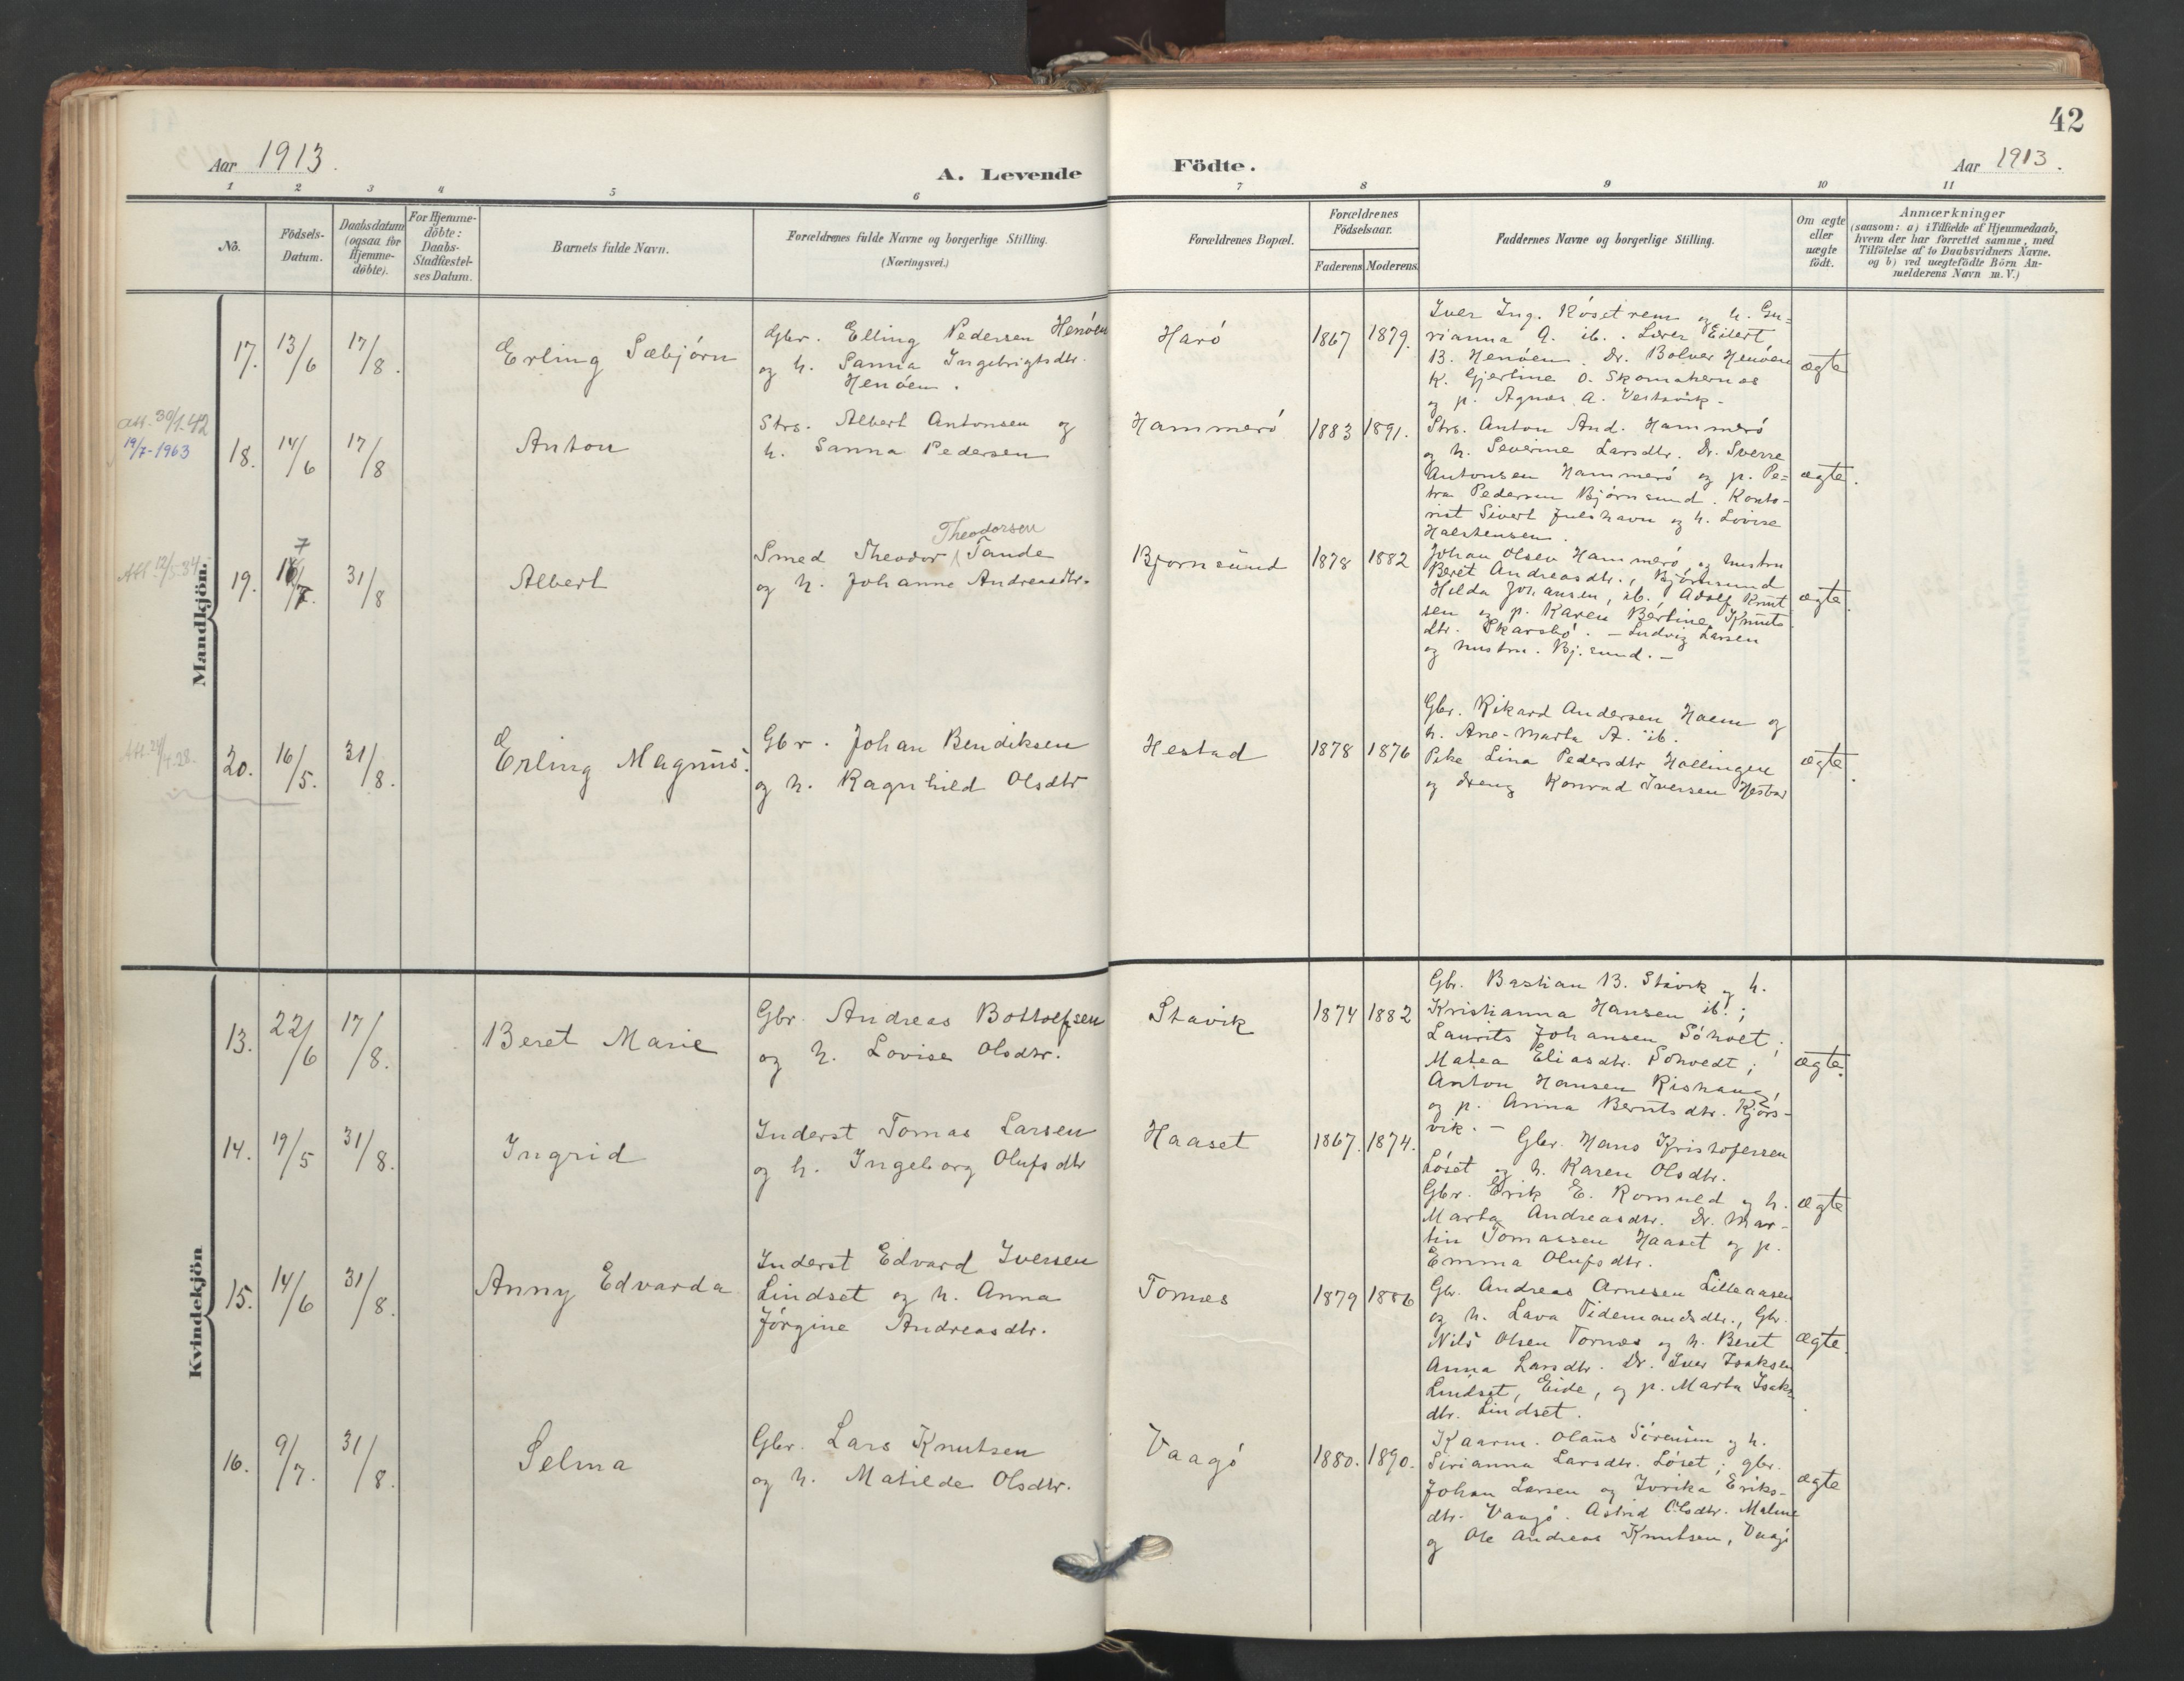 42
Aar 1913.
A. Levende
Födte.
Aar 1913.
1 2 3 4 5 6 7 8 9 10 11
No.
Födsels-
Datum.
Daabsdatum
(ogsaa for
Hjemme-
döbte).
For Hjemme-
döbte:
Daabs-
Stadfæstel-
ses Datum.
Barnets fulde Navn.
Forældrenes fulde Navne og borgerlige Stilling.
(Næringsvei.)
Forældrenes Bopæl.
Forældrenes
Födselsaar.
Faderens Moderens
Faddernes Navne og borgerlige Stilling.
Om ægte
eller
uægte
födt.
Anmærkninger
(saasom: a) i Tilfælde af Hjemmedaab,
hvem der har forrettet samme, med
Tilföielse af to Daabsvidners Navne.
og b) ved uægtefödte Börn An-
melderens Navn m. V.)
Mandkjön.
17. 13/6 17/8.
Erling Sæbjörn
Gbr. Elling Pedersen Henöen
og h. Sanna Ingebrigtsdtr.
Henöen.
Harö
1867 1879.
Iver Ing. Röset rem og h. Gu=
rianna A. ib. Lærer Eilert
B. Henöen. Dr. Bolver Henöen
K. Gjertine O. Skomakernes
og p. Agnes A. Vestavik -
ægte
Att. 30/1.42
19/7-1963
18. 14/6 17/8
Anton
Strs. Albert Antonsen og
h. Sanna Pedersen
Hammerö
1883 1891.
Strs. Anton And. Hammerö
og h. Severine Larsdtr. Dr. Sverre
Antonsen Hammerö og p. Pe=
tra Pedersen Björnsund. Konto-
rist Sivert Julshavn og h. Lovise
Halstensen.
ægte.
Att. 12/5.34
19. 7 31/8
Albert
Theodorsen
Smed Theodor Tande
og h. Johanne Andreasdtr.
Bjornsund
1878 1882
Johan Olsen Hammerö, og hustru
Beret Andreasdtr., Björnsund
Hilda Johansen, ib. Adolf Knut-
sen og p. Karen Bertine Knuts
dtr. Skarsbö. - Ludvig Larsen
og hustru. Bj.sund. -
ægte.
20. 16/5. 31/8.
Erling Magnus.
Gbr. Johan Bendiksen
og h. Ragnhild Olsdtr
Hestad
1878 1876
Gbr. Rikard Andersen Haem og
h. Ane-Marta A. ib.
Pike Lina Pedersdtr Hollingen
og dreng Konrad Iversen Hestad
ægte.
Kvindekjön
13. 22/6 17/8.
Beret Marie
Gbr. Andreas Bottolfsen
og h. Lovise Olsdtr.
Stavik
1874 1882
Gbr. Bastian B. Stavik og h.
Kristianna Hansen ib.;
Laurits Johansen Söhoet;
Matea Eliasdtr. Sohoedt;
Anton Hansen Rishaug,
og p. Anna Berntsdtr. Kjörs-
vik. -
ægte.
14. 19/5 31/8.
Ingrid
Inderst Tomas Larsen
og h. Ingeborg Olufsdtr
Haaset
1867. 1874.
Gbr. Hans Kristofersen
Löset og h. Karen Olsdtr.
Gbr. Erik E. Romuld og h.
Marta Andreasdtr. Dr. Mar-
tin Tomassen Haaset og p.
Emma Olufsdtr.
ægte
15. 14/6 31/8.
Anny Edvarda
Inderst Edvard Iversen
Lindset og h. Anna
Jörgine Andreasdtr.
Tornes
1879 1886
Gbr. Andreas Arnesen Lilleaasen
og h. Lava Tidemandsdtr., Gbr.
Nils Olsen Tornes og h. Beret
Anna Larsdtr. Dr. Iver Isaksen
Lindset, Eide, og p. Marta Isaks
dtr. Lindset.
ægte.
16. 9/7. 31/8.
Selma
Gbr. Lars Knutsen
og h. Matilde Olsdtr.
Vaagö
1880. 1890.
Kaarm. Olaus Sörensen og h.
Sirianna Larsdtr. Löset; gbr.
Johan Larsen og Ivrika Eriks-
dtr. Vaagö. Astrid Olsdtr. Malme
og Ole Andreas Knutsen, Vaagö
ægte